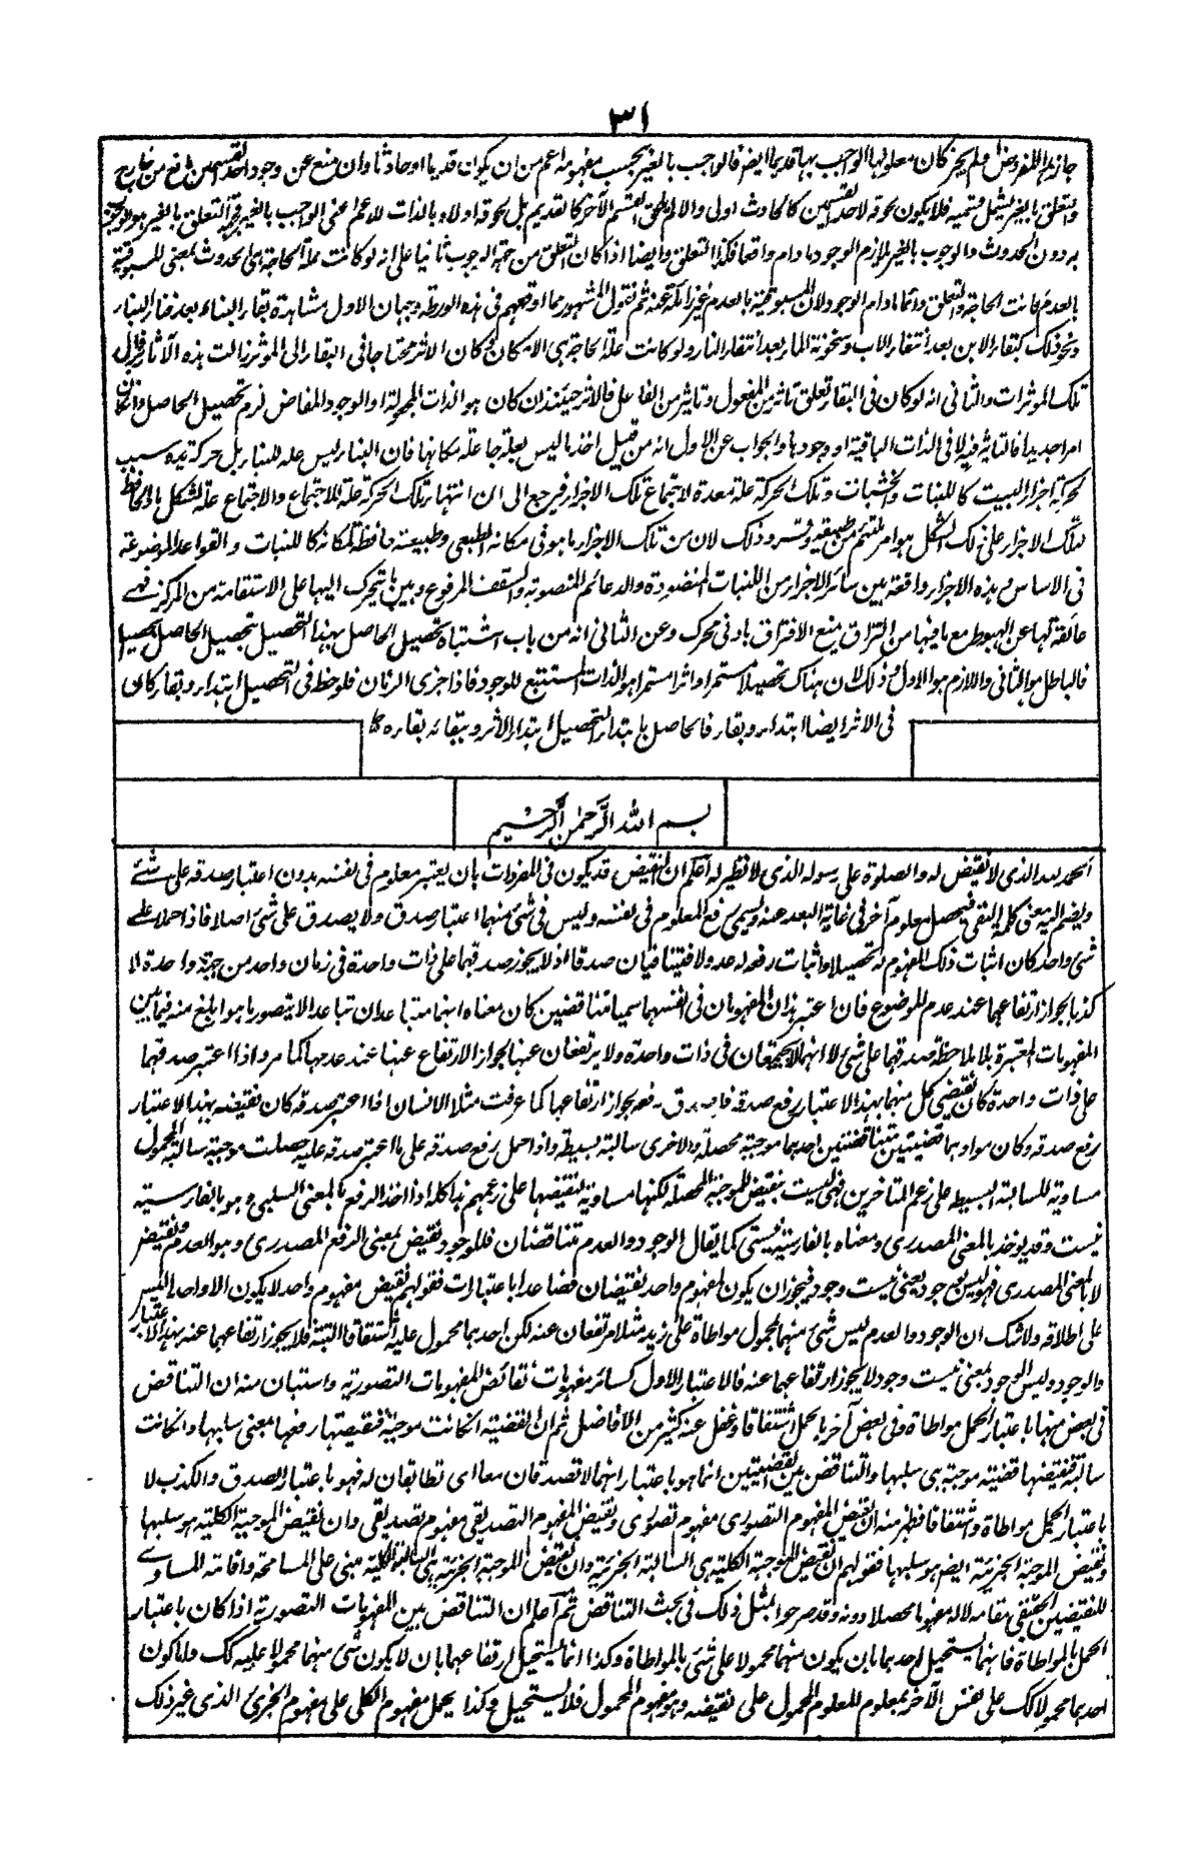 ٣١
كان معلولها الواجب بها قديما ايضا فالواجب بالغير بحسب مفهومه اعم من ان يكون قديما او حادثا وان منع عن وجود احد القسمين مانع من خارج
والتعلق بالغير يشمل قسميه فلا يكون لحوقه لاحد القسمين كالحادث اولى والا لم يلحق القسم الآخر كالقديم بل لحوقه اولا وبالذات للاعم اعنى الواجب بالغير فجهة التعلق بالغير هو الوجوب
به دون الحدوث والوجوب بالغير لازم الوجود مادام واقعا فكذا التعلق وايضا اذا كان التعلق من جهة الوجوب ثانيا على انه لو كانت علة الحاجة هى الحدوث بمعنى المسبوقية
بالعدم كانت الحاجة والتعلق دائما مادام الوجود لان المسبوقية بالعدم غير زائلة عنه ثم نقول المشهور مما اوقعهم فى هذه الورطة وجهان الاول مشاهدة بقاء البناء بعد فناء البناء
ونحو ذلك كبقاء الابن بعد انتفاء الاب وسخونة الماء بعد انتفاء النار ولو كانت علة الحاجة هى الامكان لكان الاثر محتاجا فى البقاء الى المؤثر زالت هذه الآثار بزوال
تلك المؤثرات والثانى انه لو كان فى البقاء تعلق تأثر من المفعول وتأثير من الفاعل فالاثر حينئذ ان كان هو الذات المجعولة او الوجود المفاض لزم تحصيل الحاصل وان كان
امرا جديدا فالتأثير فيه لا فى الذات الباقية او وجودها والجواب عن الاول انه من قبيل اخذ ما ليس بعلة جاعلة مكانها فان البناء ليس علة للبناء بل حركة يده سبب
لحركة اجزاء البيت كاللبنات والخشبات وتلك الحركة علة معدة لاجتماع تلك الاجزاء فيرجع الى ان انتهاء تلك الحركة علة للاجتماع والاجتماع علة لشكل ما والحافظ
لتلك الاجزاء على ذلك الشكل هو امر ملتئم من طبيعية وقسر وذلك لان من تلك الاجزاء ما هو فى مكانه الطبعى وطبيعته حافظة لمكانه كاللبنات والقواعد الموضوعة
فى الاساس وهذه الاجزاء واقعة بين سائر الاجزاء من اللبنات المنضودة والدعائم المنصوبة والسقف المرفوع وبين ما يتحرك اليها على الاستقامة من المركز فهى
عائقة لها عن الهبوط مع ما فيها من التزاق يمنع الافتراق بادنى محرك وعن الثانى انه من باب اشتباه تحصيل الحاصل بهذا التحصيل بتحصيل الحاصل بتحصيل
فالباطل هو الثانى واللازم هو الاول وذلك لان هناك تحصيلا مستمرا واثرا مستمرا هو الذات المستتبع للوجود فاذا جزى الزمان فلوحظ فى التحصيل ابتداء وبقاء كان
فى الاثر ايضا ابتداء وبقاء فالحاصل بابتداء التحصيل ابتداء الاثر وببقائه بقاءه
بسم الله الرحمن الرحيم
الحمد لله الذى لا نقيض له والصلوة على رسوله الذى لا نظير له اعلم ان النقيض قد يكون فى المفردات بان يعتبر معلوم فى نفسه بدون اعتبار صدقه على شئ
ويضم اليه معنى كلمة النفى فيحصل معلوم آخر فى غاية البعد عنه ويسمى رفع المعلوم فى نفسه وليس فى شئ منهما اعتبار صدق ولا يصدق على شئ اصلا فاذا حملا على
شئ واحد كان اثبات ذلك المفهوم له تحصيلا واثبات رفعه له عدولا فيتنافيان صدقا اذ لا يجوز صدقهما على ذات واحدة فى زمان واحد من جهة واحدة لا
كذبا لجواز ارتفاعهما عند عدم الموضوع فان اعتبر هذان المفهومان فى انفسهما سميا متناقضين كان معناه انهما متباعدان تباعدا لا يتصور ما هو ابلغ منه فيما بين
المفهومات المعتبرة بلا ملاحظة صدقها على شئ لا انهما لا يجتمعان فى ذات واحدة ولا يرتفعان عنها لجواز الارتفاع عنها عند عدمها كما مر واذا اعتبر صدقهما
على ذات واحدة كان نقيض كل منهما بهذا الاعتبار رفع صدقه لجواز ارتفاعهما كما عرفت مثلا الانسان اذا اعتبر صدقه كان نقيضه بهذا الاعتبار
رفع صدقه وكان مواديهما قضيتين متناقضتين احدهما موجبة محصلة والاخرى سالبة بسيطة واذا حمل رفع صدقه على ما اعتبر صدقه عليه حصلت موجبة سالبة المحمول
مساوية للسالبة البسيطة على زعم المتأخرين فهى ليست بنقيض للموجبة المحصلة لكنها مساوية لنقيضها على زعمهم هذا كله اذا اخذ الرفع بالمعنى السلبى وهو بالفارسية
نيست وقد يوخذ بالمعنى المصدرى ومعناه بالفارسية نيستى كما يقال الوجود والعدم متناقضان فللوجود نقيض بمعنى الرفع المصدرى وهو العدم ونقيض
لا بالمعنى المصدرى فهو ليس بوجود يعنى نيست وجود فيجوز ان يكون لمفهوم واحد نقيضان فصاعدا باعتبارات فقولهم نقيض مفهوم واحد لا يكون الا واحدا ليس
على اطلاقه ولا شك ان الوجود والعدم ليس شئ منهما بمحمول مواطاة على زيد مثلا مرتفعان عنه لكن احدهما محمول عليه اشتقاقا البتة فلا يجوز ارتفاعهما عنه بهذا الاعتبار
والوجود وليس الوجود بمعنى نيست وجود لا يجوز ارتفاعهما عنه فالاعتبار الاول كسائر مفهومات نقائض المفهومات التصورية واستبان منه ان التناقض
فى بعض منها باعتبار الحمل مواطاة وفى بعض آخر بالحمل اشتقاقا وغفل عنه كثير من الافاضل ثم ان القضية ان كانت موجبة فنقيضها رفعها بمعنى سلبها وان كانت
سالبة فنقيضها قضية موجبة هى سلبها والتناقض بين القضيتين انما هو باعتبار انهما لا تصدقان معا اى تطابقان له فهو باعتبار الصدق والكذب لا
باعتبار الحمل مواطاة واشتقاقا فظهر منه ان نقيض المفهوم التصورى مفهوم تصورى ونقيض المفهوم التصديقى مفهوم تصديقى وان نقيض الموجبة الكلية هو سلبها
ونقيض الموجبة الجزئية ايضا هو سلبها فقولهم ان نقيض الموجبة الكلية هى السالبة الجزئية وان نقيض الموجبة الجزئية هى السالبة الكلية مبنى على المسامحة واقامة المساوى
للنقيضين الحقيقى مقامه لان له مفهوما محصلا دونه وقد صرحوا بمثل ذلك فى بحث التناقض ثم اعلم ان التناقض بين المفهومات التصورية اذا كان باعتبار
الحمل بالمواطاة فانهما يستحيل احدهما بان يكون منهما محمولا على شئ بالمواطاة وكذا انما يستحيل ارتفاعهما بان لا يكون شئ منهما محمولا عليه كك واما كون
احدهما محمولا كك على نفس الآخر بمعلوم للمعلوم المحمول على نقيضه وهو مفهوم المحمول فلا يستحيل وكذا يحمل مفهوم الكلى على مفهوم الجزئى الذى غير ذلك